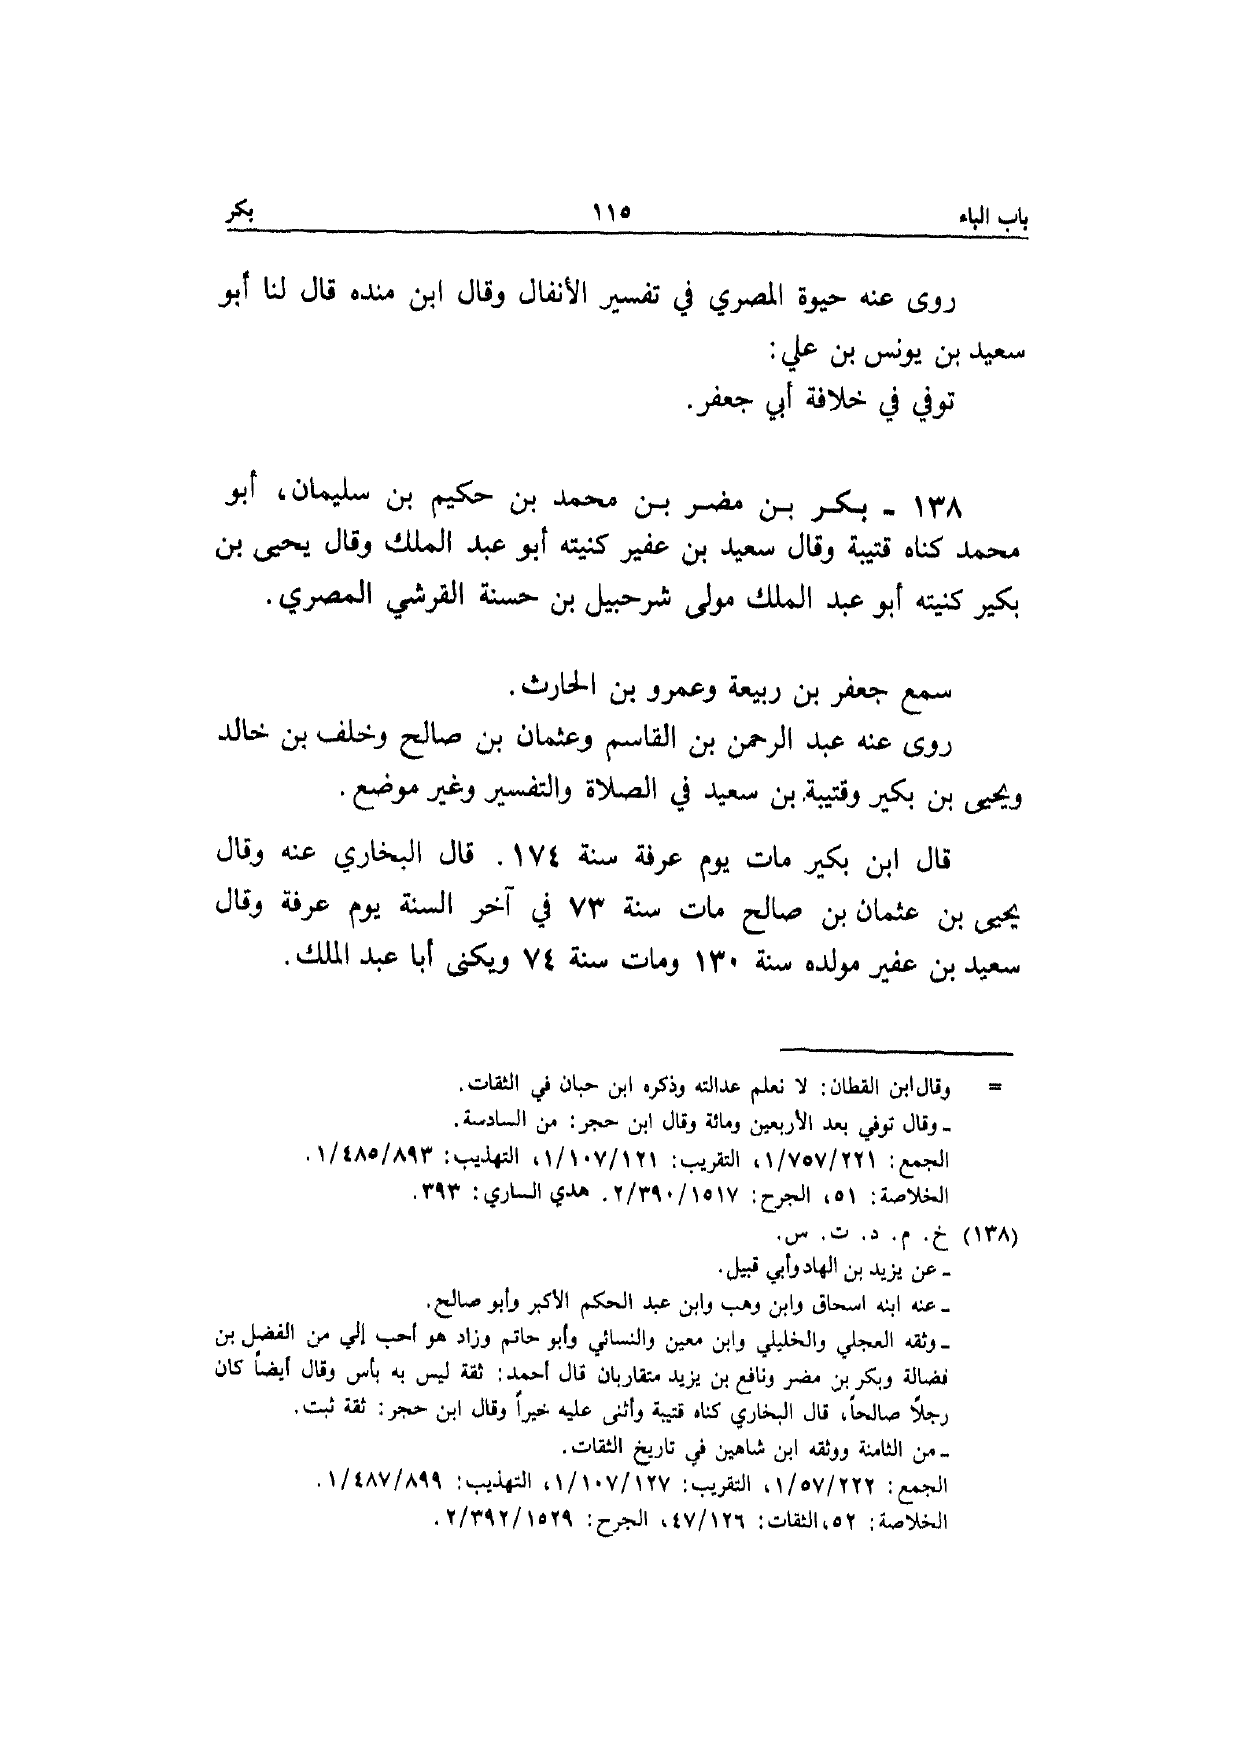 باب الباء ١١٥ بكر
روى عنه حيوة المصري في تفسير الأنفال وقال ابن منده قال لنا أبو
سعيد بن يونس بن علي:
توفي في خلافة أبي جعفر.
١٣٨ - بكر بن مضر بن محمد بن حكيم بن سليمان، أبو
محمد كناه قتيبة وقال سعيد بن عفير كنيته أبو عبد الملك وقال يحيى بن
بكير كنيته أبو عبد الملك مولى شرحبيل بن حسنة القرشي المصري.
سمع جعفر بن ربيعة وعمرو بن الحارث.
روى عنه عبد الرحمن بن القاسم وعثمان بن صالح وخلف بن خالد
ويحيى بن بكير وقتيبة بن سعيد في الصلاة والتفسير وغير موضع.
قال ابن بكير مات يوم عرفة سنة ١٧٤. قال البخاري عنه وقال
يحيى بن عثمان بن صالح مات سنة ٧٣ في آخر السنة يوم عرفة وقال
سعيد بن عفير مولده سنة ١٣٠ ومات سنة ٧٤ ويكنى أبا عبد الملك.
= وقال ابن القطان: لا نعلم عدالته وذكره ابن حبان في الثقات.
- وقال توفي بعد الأربعين ومائة وقال ابن حجر: من السادسة.
الجمع: ١/٧٥٧/٢٢١، التقريب: ١/١٠٧/١٢١، التهذيب: ١/٤٨٥/٨٩٣.
الخلاصة: ٥١، الجرح: ٢/٣٩٠/١٥١٧. هدي الساري: ٣٩٣.
(١٣٨) خ. م. د. ت. س.
- عن يزيد بن الهاد وأبي قبيل.
- عنه ابنه اسحاق وابن وهب وابن عبد الحكم الأكبر وأبو صالح.
- وثقه العجلي والخليلي وابن معين والنسائي وأبو حاتم وزاد هو أحب إلي من الفضل بن
فضالة وبكر بن مضر ونافع بن يزيد متقاربان قال أحمد: ثقة ليس به بأس وقال أيضاً كان
رجلاً صالحاً، قال البخاري كناه قتيبة وأثنى عليه خيراً وقال ابن حجر: ثقة ثبت.
- من الثامنة ووثقه ابن شاهين في تاريخ الثقات.
الجمع: ١/٥٧/٢٢٢، التقريب: ١/١٠٧/١٢٧، التهذيب: ١/٤٨٧/٨٩٩.
الخلاصة: ٥٢، الثقات: ٤٧/١٢٦، الجرح: ٢/٣٩٢/١٥٢٩.